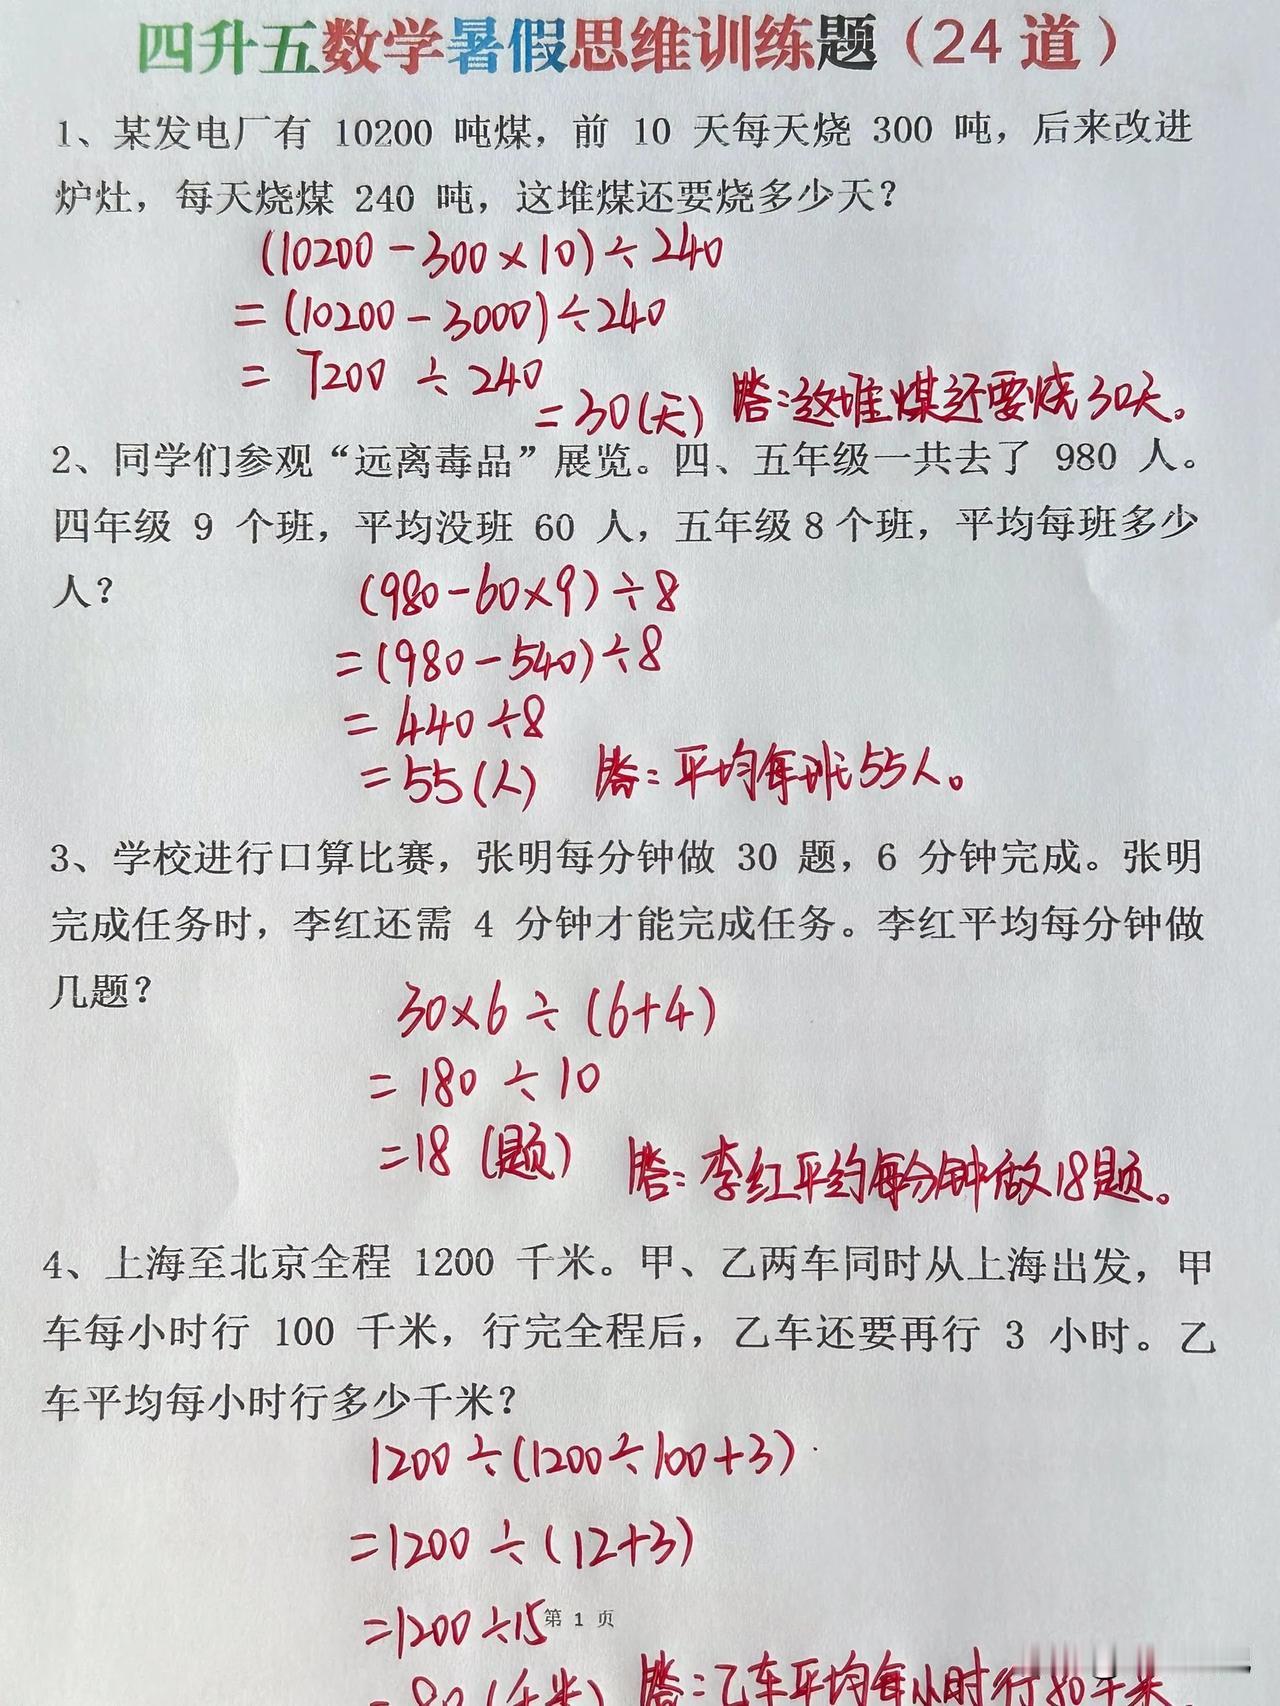 四升五数学暑假思维训练题（24道）
1、某发电厂有 10200 吨煤，前 10 天每天烧 300 吨，后来改进
炉灶，每天烧煤 240 吨，这堆煤还要烧多少天？
(10200-300×10)÷240
=(10200-3000)÷240
= 7200 ÷ 240
=30(天) 答:这堆煤还要烧30天。
2、同学们参观“远离毒品”展览。四、五年级一共去了 980 人。
四年级 9 个班，平均没班 60 人，五年级8个班，平均每班多少
人？
(980-60×9)÷8
=(980-540)÷8
= 440÷8
=55(人) 答:平均每班55人。
3、学校进行口算比赛，张明每分钟做 30 题，6 分钟完成。张明
完成任务时，李红还需 4 分钟才能完成任务。李红平均每分钟做
几题？
30×6 ÷ (6+4)
= 180 ÷ 10
=18 (题) 答:李红平均每分钟做18题。
4、上海至北京全程 1200 千米。甲、乙两车同时从上海出发，甲
车每小时行 100 千米，行完全程后，乙车还要再行 3 小时。乙
车平均每小时行多少千米？
1200÷(1200÷100+3)
=1200 ÷ (12+3)
=1200÷15
第 1 页
=80(千米) 答:乙车平均每小时行80千米